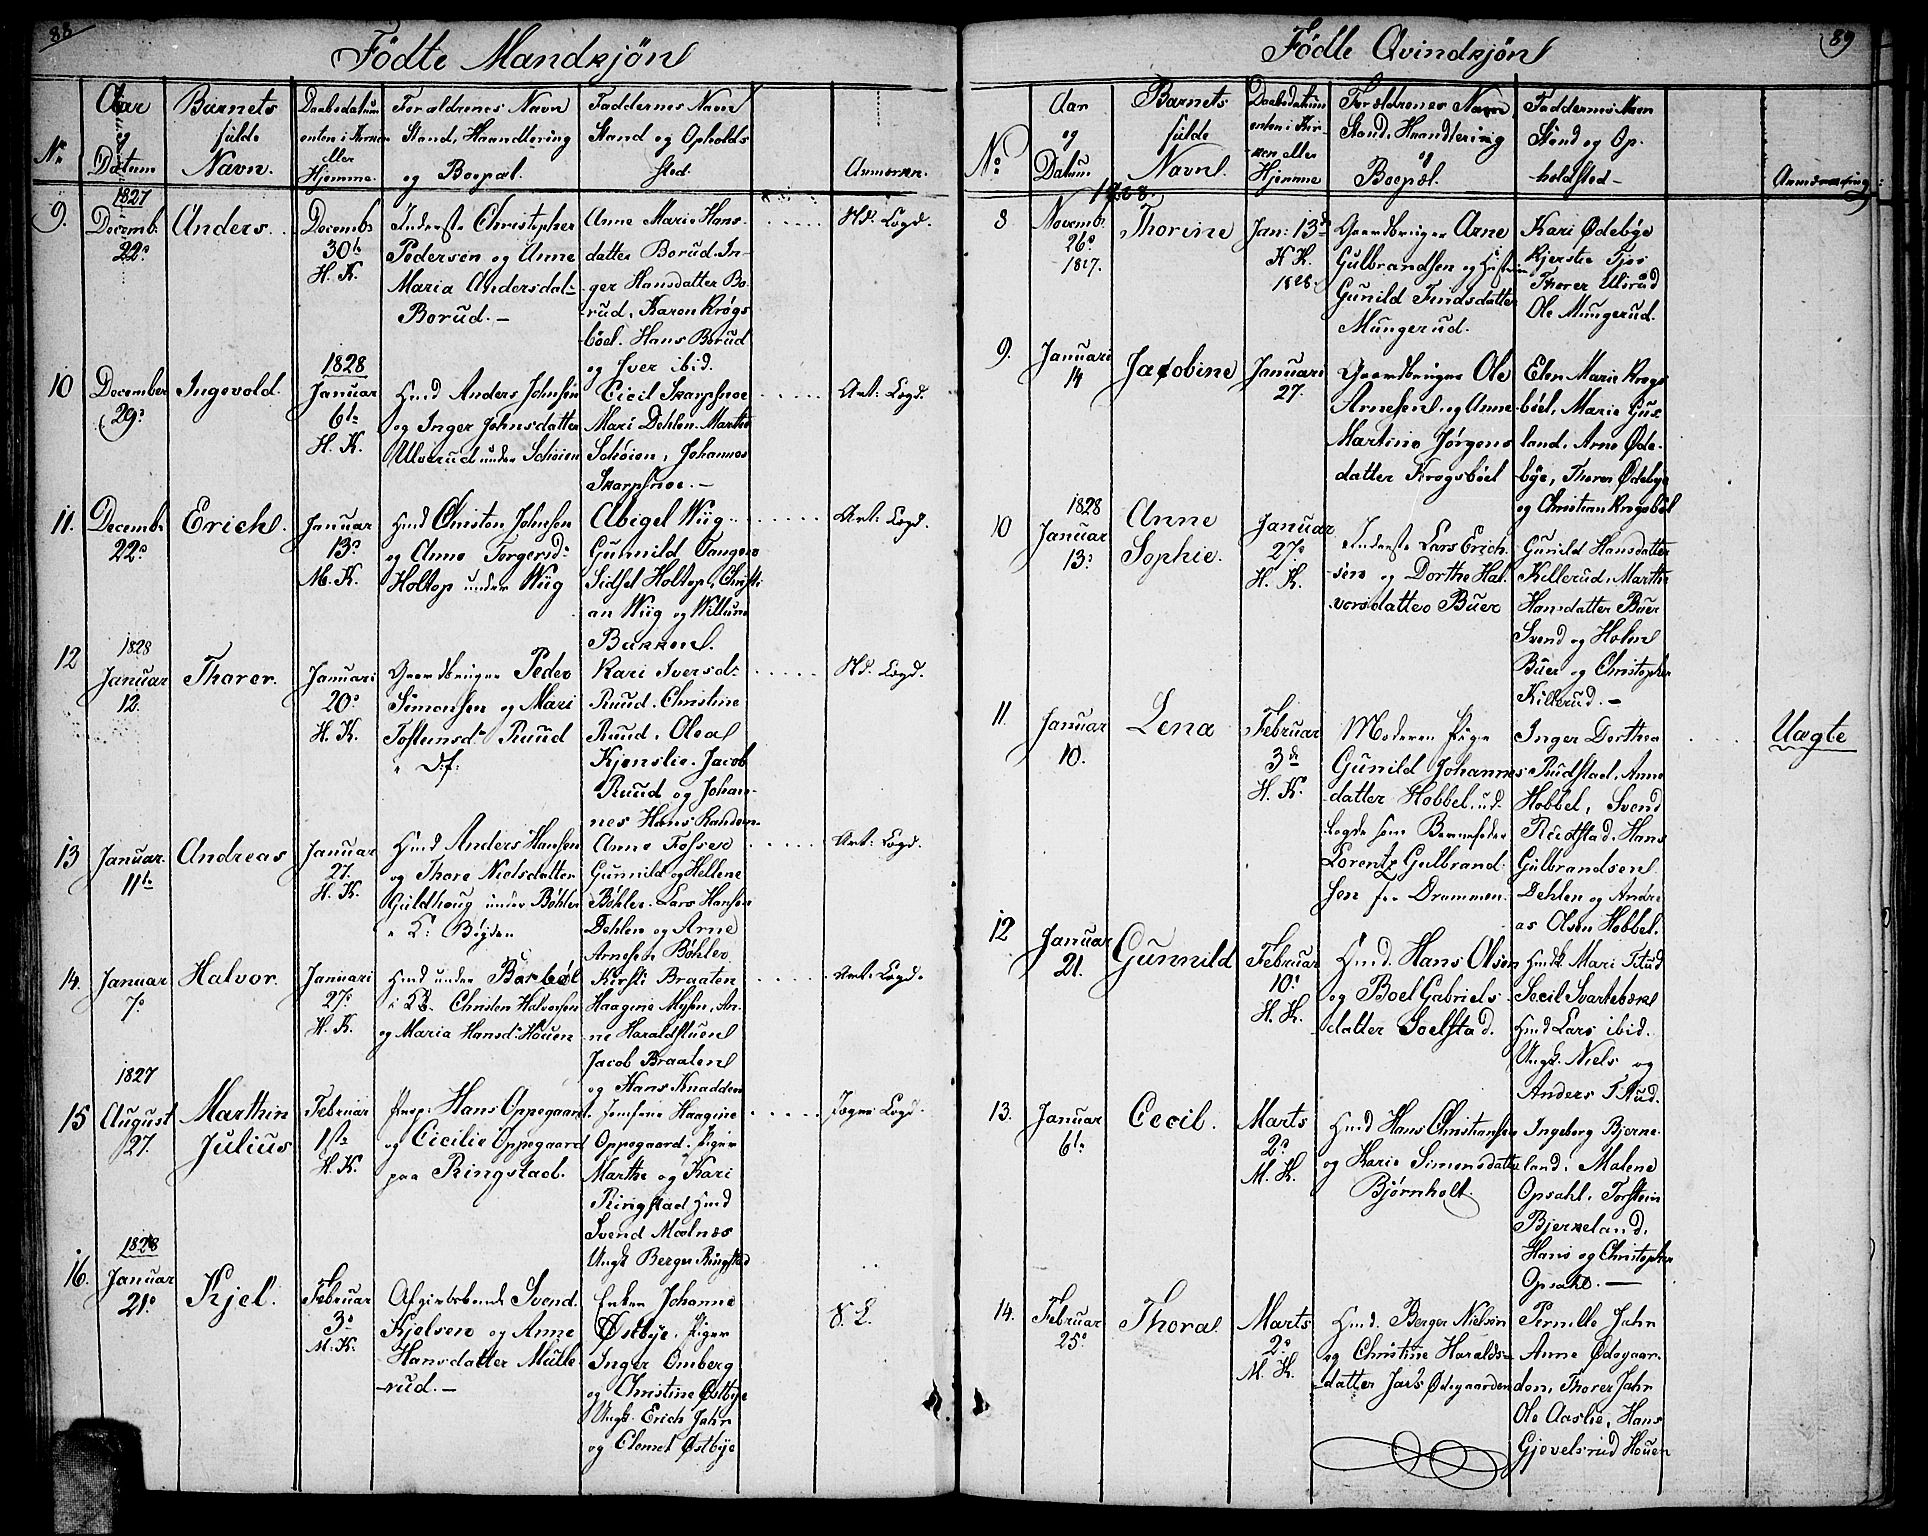 88
Födte Mandkjön
No
Aar og Datum
Barnets fulde Navn.
Daabsdatum enten i Kirken eller Hjemme
Foraldrenes Navn Stand, Haandtering og Boepæl.
Faddernes Navn Stand og Opholds sted.
Anmerkn.
9.
1827
Decemb.
22
Anders.
Decemb.
30
H. K.
Inderste Christopher
Pedersen og Anne
Maria Andersdat-
Borud.-
Anne Marie Hans-
datter Borud. In-
ger Hansdatter Bo-
rud, Karen Krogs-
böel. Hans Borud
og Iver ibid.
Nd. Logd.
10
December
29
Ingevold.
1828
Januar
6te
H. K.
Huusmd Anders Johnsen
og Inger Johnsdatter
Ulverud under Schöien
Cicil Skarpsnoe
Mari Dehlen. Marthe
Schöien, Johannes
Skarpsnoe.-
Ant: Logd.
11.
Decemb.
22
Erich.
Januar
13
M. K.
Huusmd Christen Johnsen
og Anne Torgersd:
Holtop under Wiig
Abigel Wiig
Gunnild Tangene
Sidsel Holtop, Christi-
an Wiig og Willum
Bakken.
Ant: Logd.
12
1828
Januar
12.
Thorer.
Januari
20
H. K.
Gaardbruger Peder
Simonsen og Mari
Tostensd: Ruud
Kari Iversd:
Ruud. Christine
Ruud. Olea
Kjenslie. Jacob
Ruud og Johan-
nes Hans
Nd. Logd.
13
Januar.
11te
Andreas
Januar
27.
H. K.
Huusmd Anders Hansen
og Thore Nielsdatter
Guldhoug under Böhler
Anne Fosser
Gunnild og Hellene
Böhler. Lars Hansen
Dehlen og Arne
Arnesen Böhler.
Ant: Logd.
14.
Januar
7
Halvor.
Januari
27
H. K.
Huusmd under Barböl
Christen Halvorsen
og Maria Hansd: Houen
Kirsti Braaten
Haagine Mysen, An-
ne Haraldstuen
Jacob Braaten
og Hans Knadden
Ant: Logd.
15
1827
August
27.
Marthin
Julius
Februar
1ste
H. K.
Hans Oppegaard
og Cicilie Oppegaard
paa Ringstad.
Jomfrue Haagine
Oppegaard. Piger
Marthe og Kari
Ringstad Huusmd
Svend Malnæs
Ungk. Berger Ringstad
Logd.
16.
1828
Januar
21
Kjel.
Februar
3
M. K.
Svend
Kjelsen og Anne
Hansdatter Mülle-
-rud.-
Enken Johanne
Østbye. Piger
Inger Omberg
og Christine Østbye
Ungk. Erich Jahr
og Clemet Østbye
89
Födte Qvindkjön
No
Aar og Datum
Barnets fulde Navn.
Daabsdatum enten i Kirken eller Hjemme
Forældrenes Navn Stand, Haandtering og Boepæl.
Faddernes Navn Stand og Op-holdsted-
Anmærkning
8
Novemb.
26
1827.
Thorine
Jan: 13de
H. K.
1828.
Gaardbruger Arne
Gulbrandsen og Hustrue
Gunild Findsdatter
Mungerud.
Kari Ødebye
Kjerstie
Thorer Ulsrud
Ole Mungerud.
9.
Januari
14
Jacobine
Januari
27.
Gaardbruger Ole
Arnesen og Anne
Martine Jörgens
datter Krogsböel
Elen Marie Krogs
böel, Marie Gus-
land. Arne Øde-
bye, Thorer Ødebye
og Christian Krogsböl
10
1828
Januar
13
Anne
Sophie.
Januar
27
H. K.
Inderste Lars Erich-
sen og Dorthe Hal-
vorsdatter Buer
Gunild Hansdatter
Killerud. Marthe
Hansdatter Buer
Svend og Holm
Buer og Christopher
Killerud.-
11.
Januar
10.
Lena
Februar
3de
H. K.
Moderen Pige
Gunild Johannes
datter Hobbel. ud-
lagde som Barnefader
Lorentz Gulbrand-
sen fra Drammen.
Inger Dorthea
Rudstad. Anne
Hobbel, Svend
Rudstad. Hans
Gulbrandsen
Dehlen og Andre-
as Olsen Hobbel.
Uægte
12
Januar
21.
Gunnild
Februar
10
H. K.
Huusmd. Hans Olsen
og Boel Gabriels-
datter Soelstad.
Mari
Secil Svartebæk
Huusmd Lars ibid.
Ungk. Niels og
Anders
13.
Januar
6te
Cecil.
Marts
2
M. K.
Huusmd Hans Christiansen
og Karie Simonsdatter
Bjørnholt.
Ingeborg Bjerke-
land. Malene
Opsahl, Torstein
Bjerkeland.
Hans og Christopher
Opsahl.-
14.
Februar
25
Thora.
Marts
2
M. K.
Huusmd. Berger Nielsön
og Christine Haralds-
datter Jahr Ødegaarden
Pernille Jahr
Anne Ødegaar-
den, Thorer Jahr
Ole Aaslie, Hans
Gjevelsrud Houen